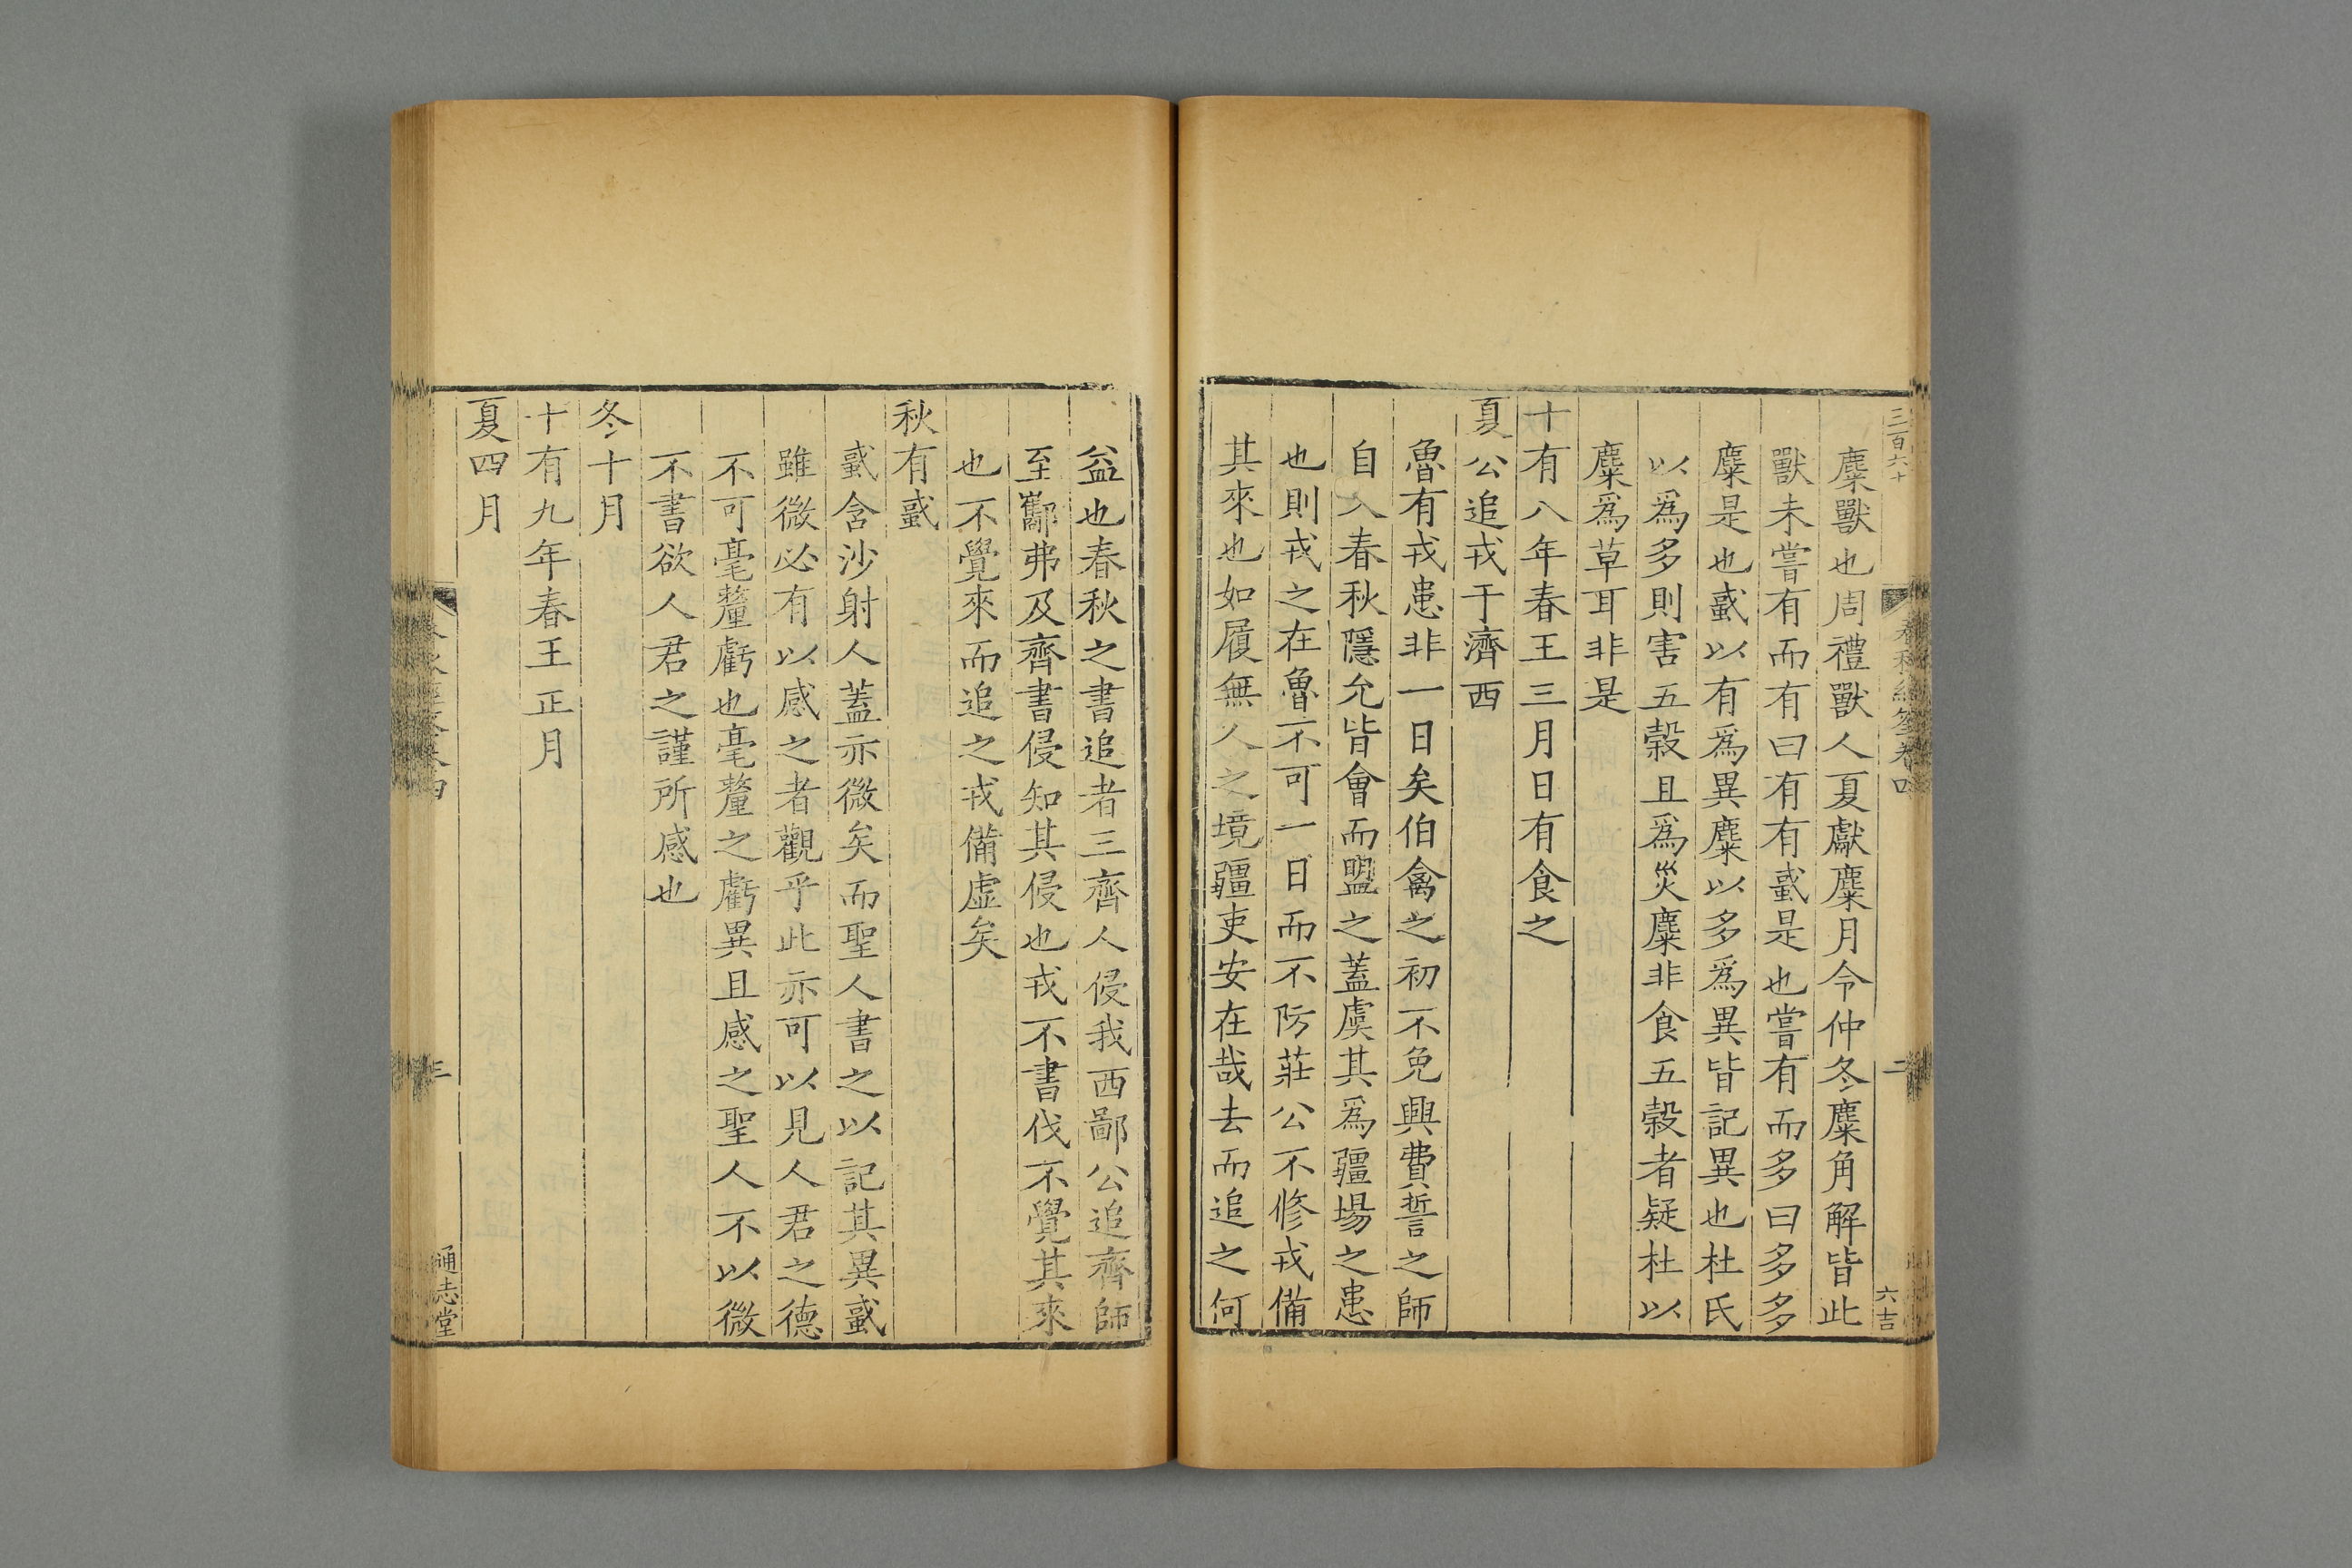 三百六十
春秋經筌卷四
二
六吉
麋獸也周禮獸人夏獻麋月令仲冬麋角解皆此
獸未嘗有而有曰有有蜮是也嘗有而多曰多多
麋是也蜮以有爲異麋以多爲異皆記異也杜氏
以爲多則害五穀且爲災麋非食五穀者疑杜以
麋爲草耳非是
十有八年春王三月日有食之
夏公追戎于濟西
魯有戎患非一日矣伯禽之初不免興費誓之師
自入春秋隱允皆會而盟之蓋虞其爲疆場之患
也則戎之在魯不可一日而不防莊公不修戎備
其來也如履無人之境疆吏安在哉去而追之何
益也春秋之書追者三齊人侵我西鄙公追齊師
至酅弗及齊書侵知其侵也戎不書伐不覺其來
也不覺來而追之戎備虛矣
秋有蜮
蜮含沙射人蓋亦微矣而聖人書之以記其異蜮
雖微必有以感之者觀乎此亦可以見人君之德
不可毫釐虧也毫釐之虧異且感之聖人不以微
不書欲人君之謹所感也
冬十月
十有九年春王正月
夏四月
三
通志堂